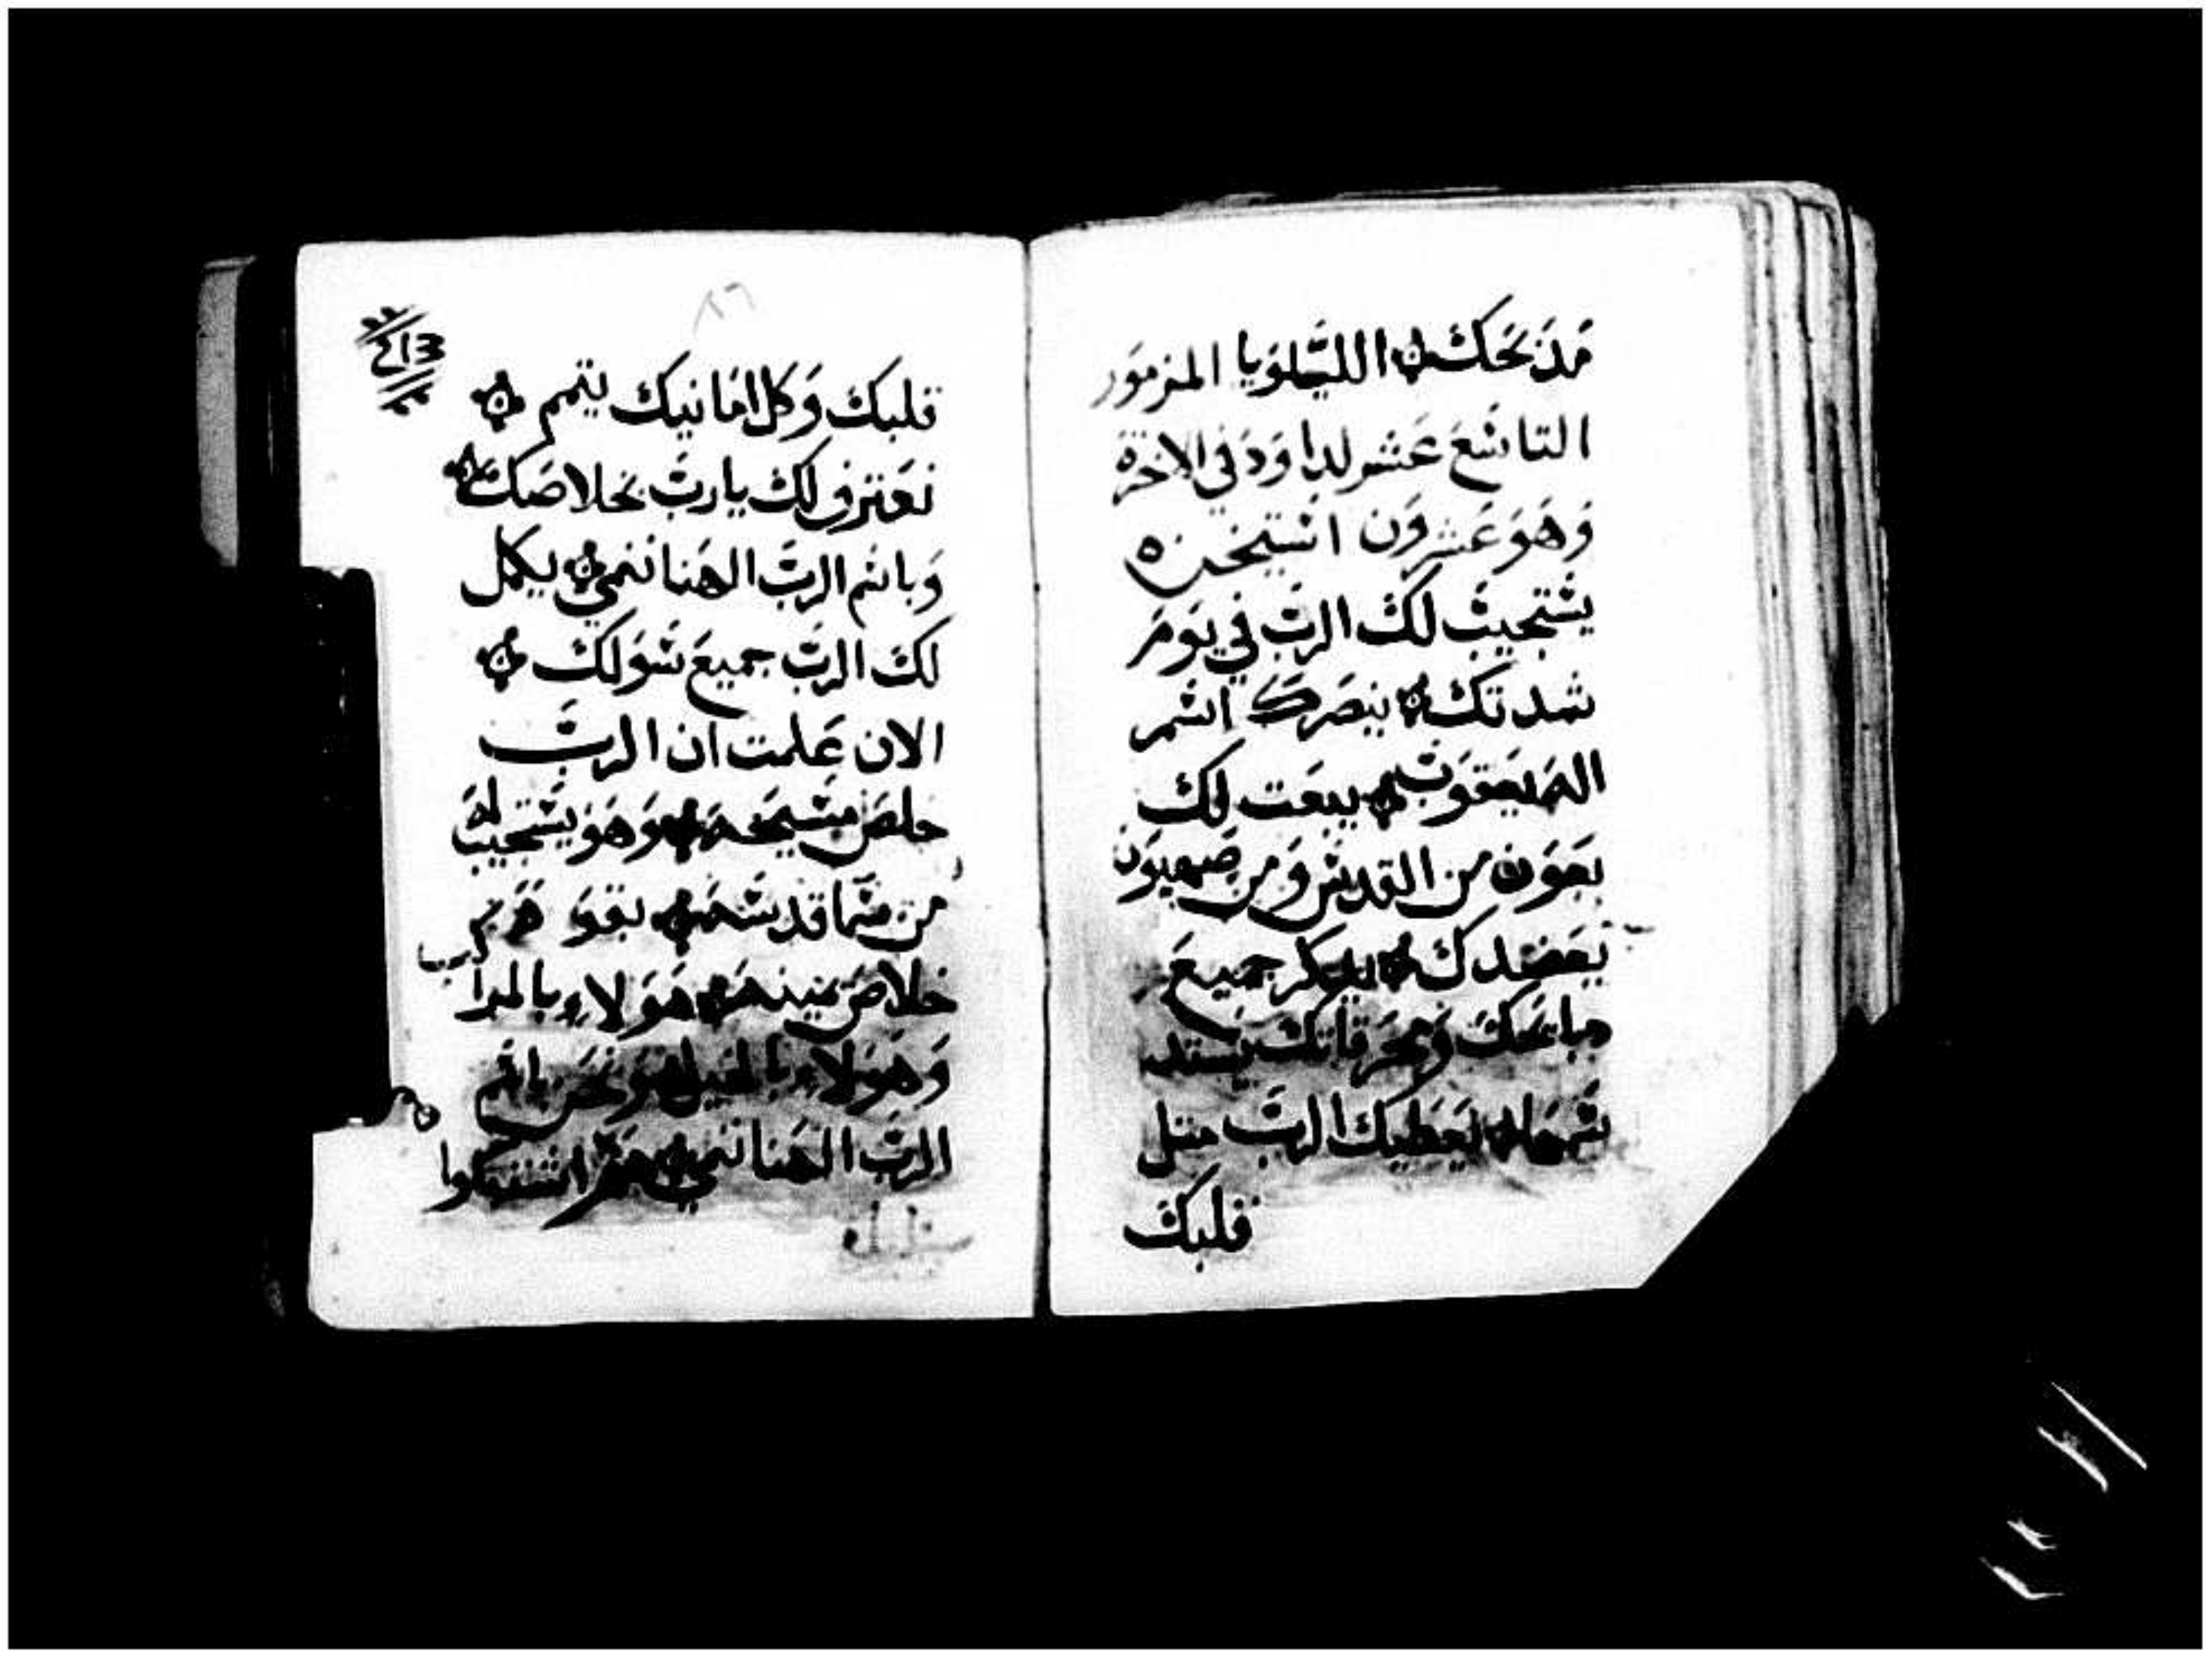 مَذبَحَك ۞ الليَّلوَيا المزمَور
التاسَع عَشر لداوَدَ في الاخرَة
وَهَوَ عَشرَون استيخن ٥
يسَتجيبَ لكَ الربَّ في يَومَ
شدتكَ ۞ ينصَرَك اسَم
الهَ يعَقوَبَ ۞ يبعَت لكَ
بعَوَن من القدسَ وَمن صَهيَوَن
يَعَضدك ۞ يدكر جميعَ
دباتحَكَ وَمحَرقاتكَ يستد
سَمَها ۞ يعَطيكَ الربَّ متل
قلبكَ
قلبكَ وَكل امَانيك يتمم ۞
نعَترف لكَ يا ربَّ بخلاصَكَ ۞
وَباسَم الربَّ الهَنا ننمي ۞ يكمل
لكَ الربَّ جميعَ سَوَلكَ ۞
الان عَلمت ان الربَّ
خلصَ مسَيحَهَ ۞ وَهَوَ يسَتجيبَ لهَ
من سَما قدسَهَ ۞ بقوَهَ
خلاصَ يمينهَ ۞ هَوَلاء بالمراكب
وَهَوَلاء بالخيل ۞ وَنحَن باسَم
الربَّ الهَنا ننمي ۞ هَم اشتبكوا